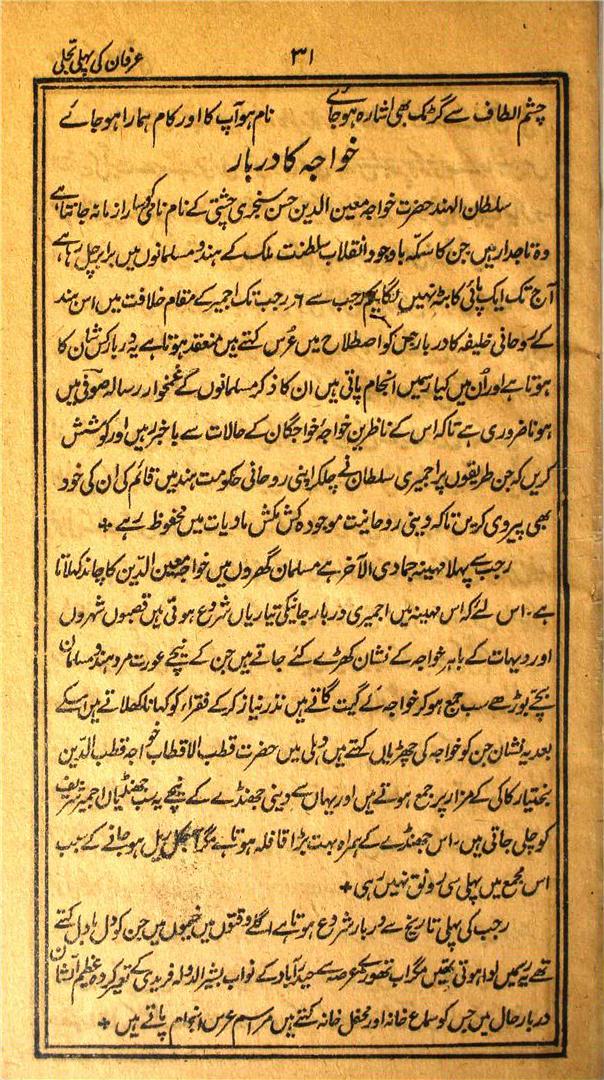 عرفان کی پہلی تجلی
۳۱
چشم الطاف سے گر ٹک بھی اشارہ ہو جائے نام ہو آپ کا اور کام ہمارا ہو جائے
خواجہ کا دربار
سلطان الہند حضرت خواجہ معین الدین حسن سنجری چشتی کے نام نامی کو سارا زمانہ جانتا ہے
وہ تاجدار ہیں جن کا سکہ باوجود انقلاب سلطنت ملک کے ہندو مسلمانوں میں برابر چل رہا ہے
آج تک ایک پائی کا بٹہ نہیں لگا یکم رجب سے ۶ رجب تک اجمیر کے مقام خلافت میں اس ہند
کے روحانی خلیفہ کا دربار جس کو اصطلاح میں عُرس کہتے ہیں منعقد ہوتا ہے یہ دربار کس شان کا
ہوتا ہے اور اُن میں کیا رسمیں انجام پاتی ہیں ان کا ذکر مسلمانوں کے غمخوار رسالہ صوفی میں
ہونا ضروری ہے تاکہ اس کے ناظرین خواجۂ خواجگان کے حالات سے باخبر رہیں اور کوشش
کریں کہ جن طریقوں پر اجمیری سلطان نے چلکر اپنی روحانی حکومت ہند میں قائم کی ان کی خود
بھی پیروی کریں تاکہ دینی روحانیت موجودہ کش مکش مادیات میں محفوظ رہے +
رجب سے پہلا مہینہ جمادی الآخر ہے مسلمان گھروں میں خواجہ معین الدّین کا چاند کہلاتا
ہے۔ اس لئے کہ اس مہینہ میں اجمیری دربار جانیکی تیاریاں شروع ہوتی ہیں قصبوں شہروں
اور دیہات کے باہر خواجہ کے نشان کھڑے کئے جاتے ہیں جن کے نیچے عورت مرد ہندو مسلمان
بچے بوڑھے سب جمع ہو کر خواجہ کے گیت گاتے ہیں نذر نیاز کر کے فقراء کو کھانا کھلاتے ہیں اسکے
بعد یہ نشان جن کو خواجہ کی چھڑیاں کہتے ہیں دہلی میں حضرت قطب الاقطاب خواجہ قطب الدّین
بختیار کاکی کے مزار پر جمع ہوتے ہیں اور یہاں سے دینی جھنڈے کے نیچے یہ سب جھنڈیاں اجمیر شریف
کو چلی جاتی ہیں۔ اس جھنڈے کے ہمراہ بہت بڑا قافلہ ہوتا ہے مگر ریل ہو جانے کے سبب
اس مجمع میں پہلی سی رونق نہیں رہی +
رجب کی پہلی تاریخ سے دربار شروع ہوتا ہے اگلے وقتوں میں خیموں میں جن کو دل بادل کہتے
تھے یہ رسمیں ادا ہوتی تھیں مگر اب تھوڑے عرصہ سے حیدرآباد کے نواب بشیر الدولہ فریدی کے تعمیر کردہ عظیم الشان
دربار ہال میں جس کو سماع خانہ اور محفل خانہ کہتے ہیں مراسم عرس انجام پاتے ہیں +